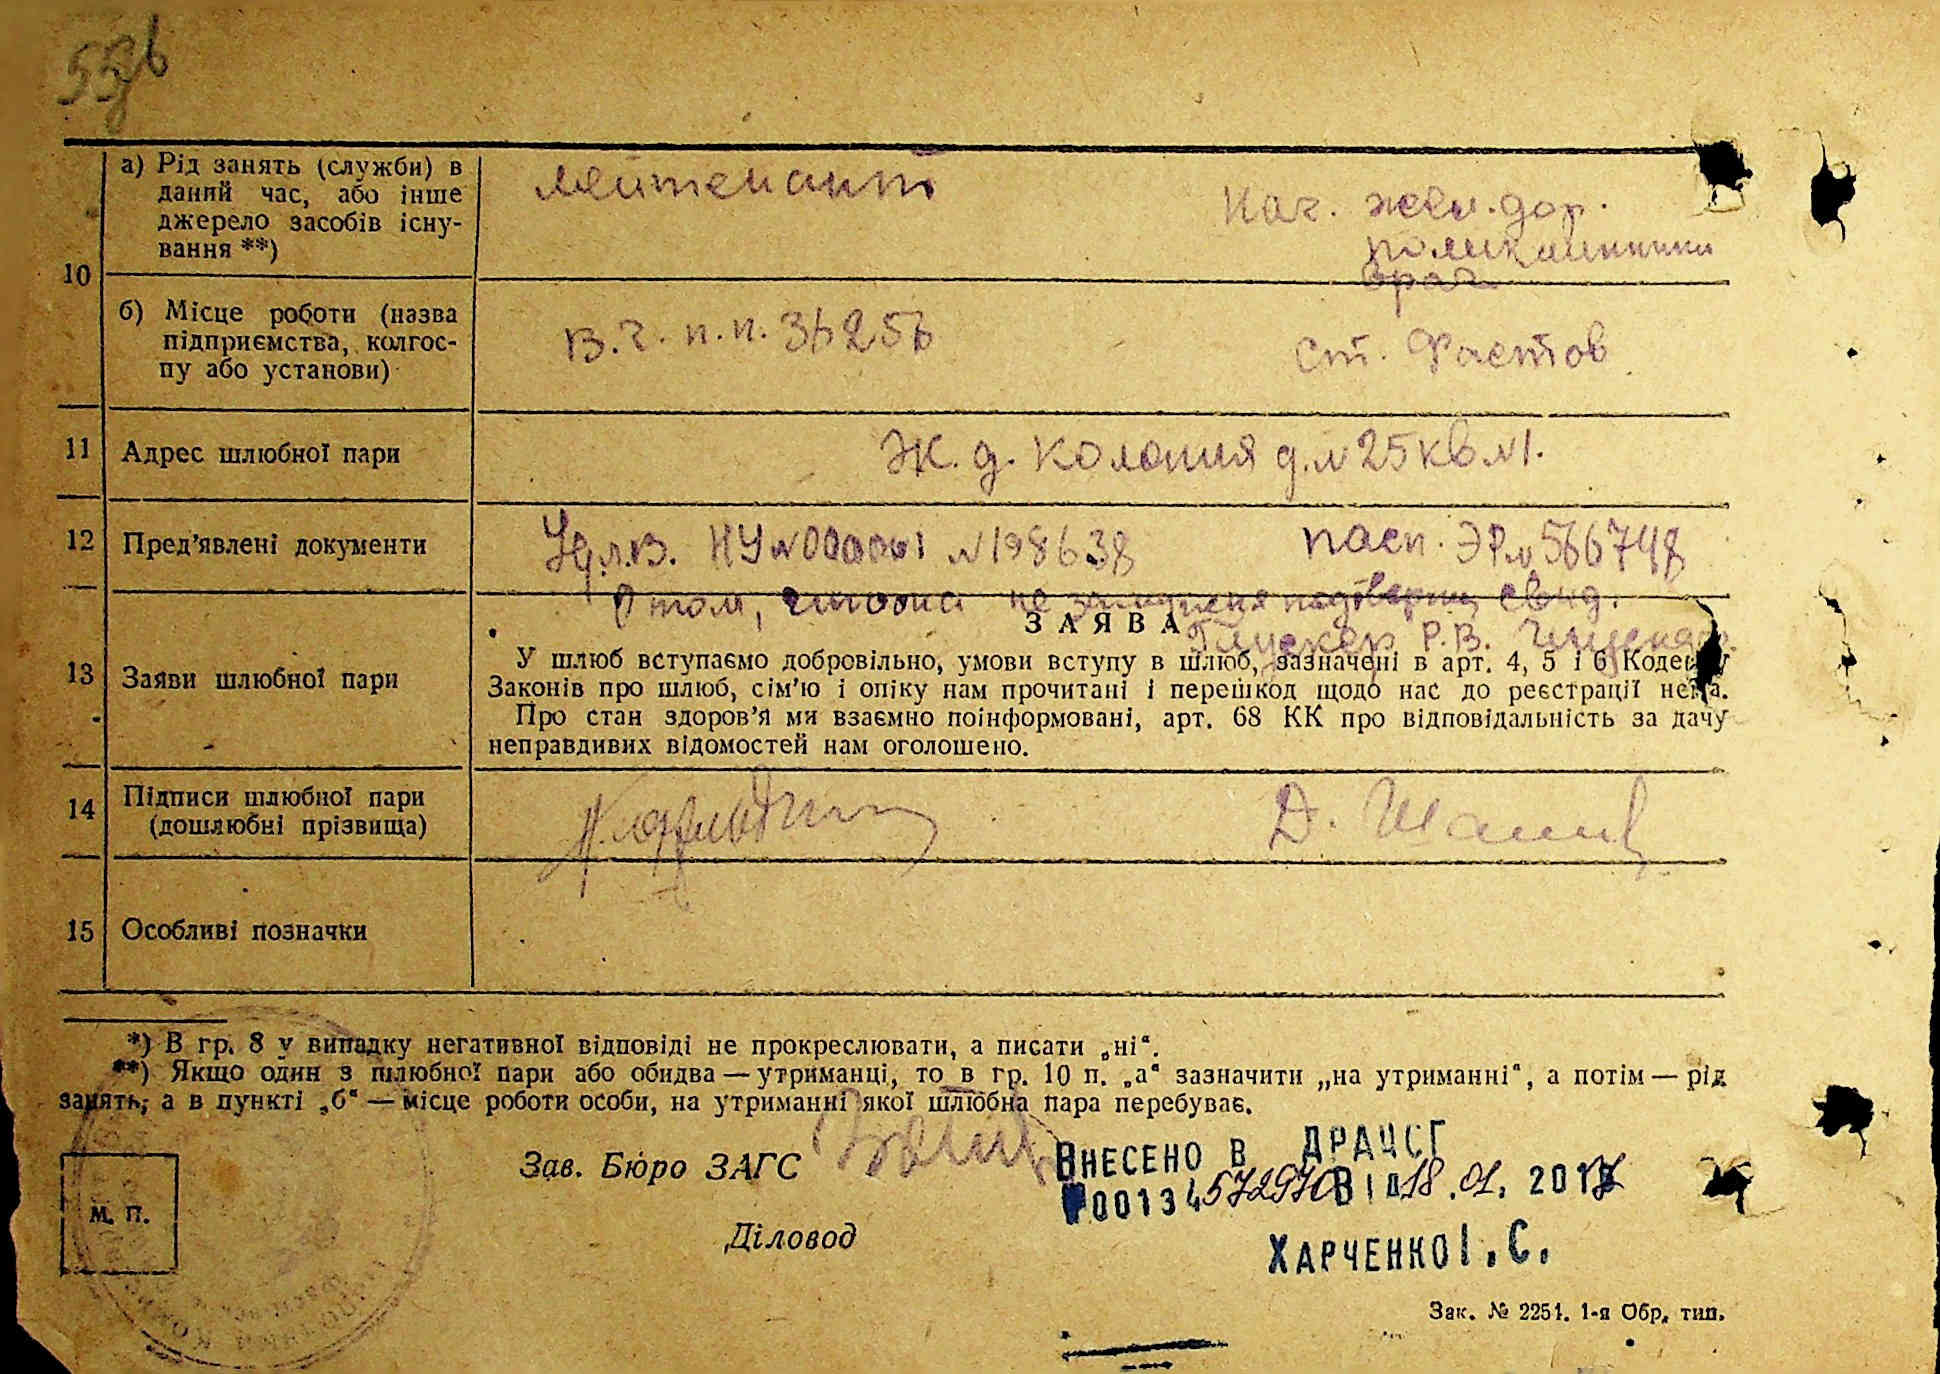 10
а) Рід занять (служби) в
даний час, або інше
джерело засобів існу-
вання **)
лейтенант
Нач. жел. дор.
поликлиники
врач
б) Місце роботи (назва
підприємства, колгос-
пу або установи)
В. Ч. п. п. 36256
ст. Фастов
11
Адрес шлюбної пари
Ж. д. Колония д. № 25 кв № 1.
12
Пред'явлені документи
Уд. л. В. НУ № 000001 № 198638
пасп. ЭР № 566748
О том, что она не замужняя свид.
Р. В.
13
Заяви шлюбної пари
ЗАЯВА
У шлюб вступаємо добровільно, умови вступу в шлюб, зазначені в арт. 4, 5 і 6 Кодексу
Законів про шлюб, сім'ю і опіку нам прочитані і перешкод щодо нас до реєстрації нема.
Про стан здоров'я ми взаємно поінформовані, арт. 68 КК про відповідальність за дачу
неправдивих відомостей нам оголошено.
14
Підписи шлюбної пари
(дошлюбні прізвища)
Д.
15
Особливі позначки
*) В гр. 8 у випадку негативної відповіді не прокреслювати, а писати „ні“.
**) Якщо один з шлюбної пари або обидва — утриманці, то в гр. 10 п. „а“ зазначити „на утриманні“, а потім — рід
занять, а в пункті „б“ — місце роботи особи, на утриманні якої шлюбна пара перебуває.
Зав. Бюро ЗАГС
ВНЕСЕНО В ДРАЦСГ
№00134572970 ВІД 18.01.2017
М. П.
Діловод
ХАРЧЕНКО І. С.
Зак. № 2251. 1-я Обр. тип.